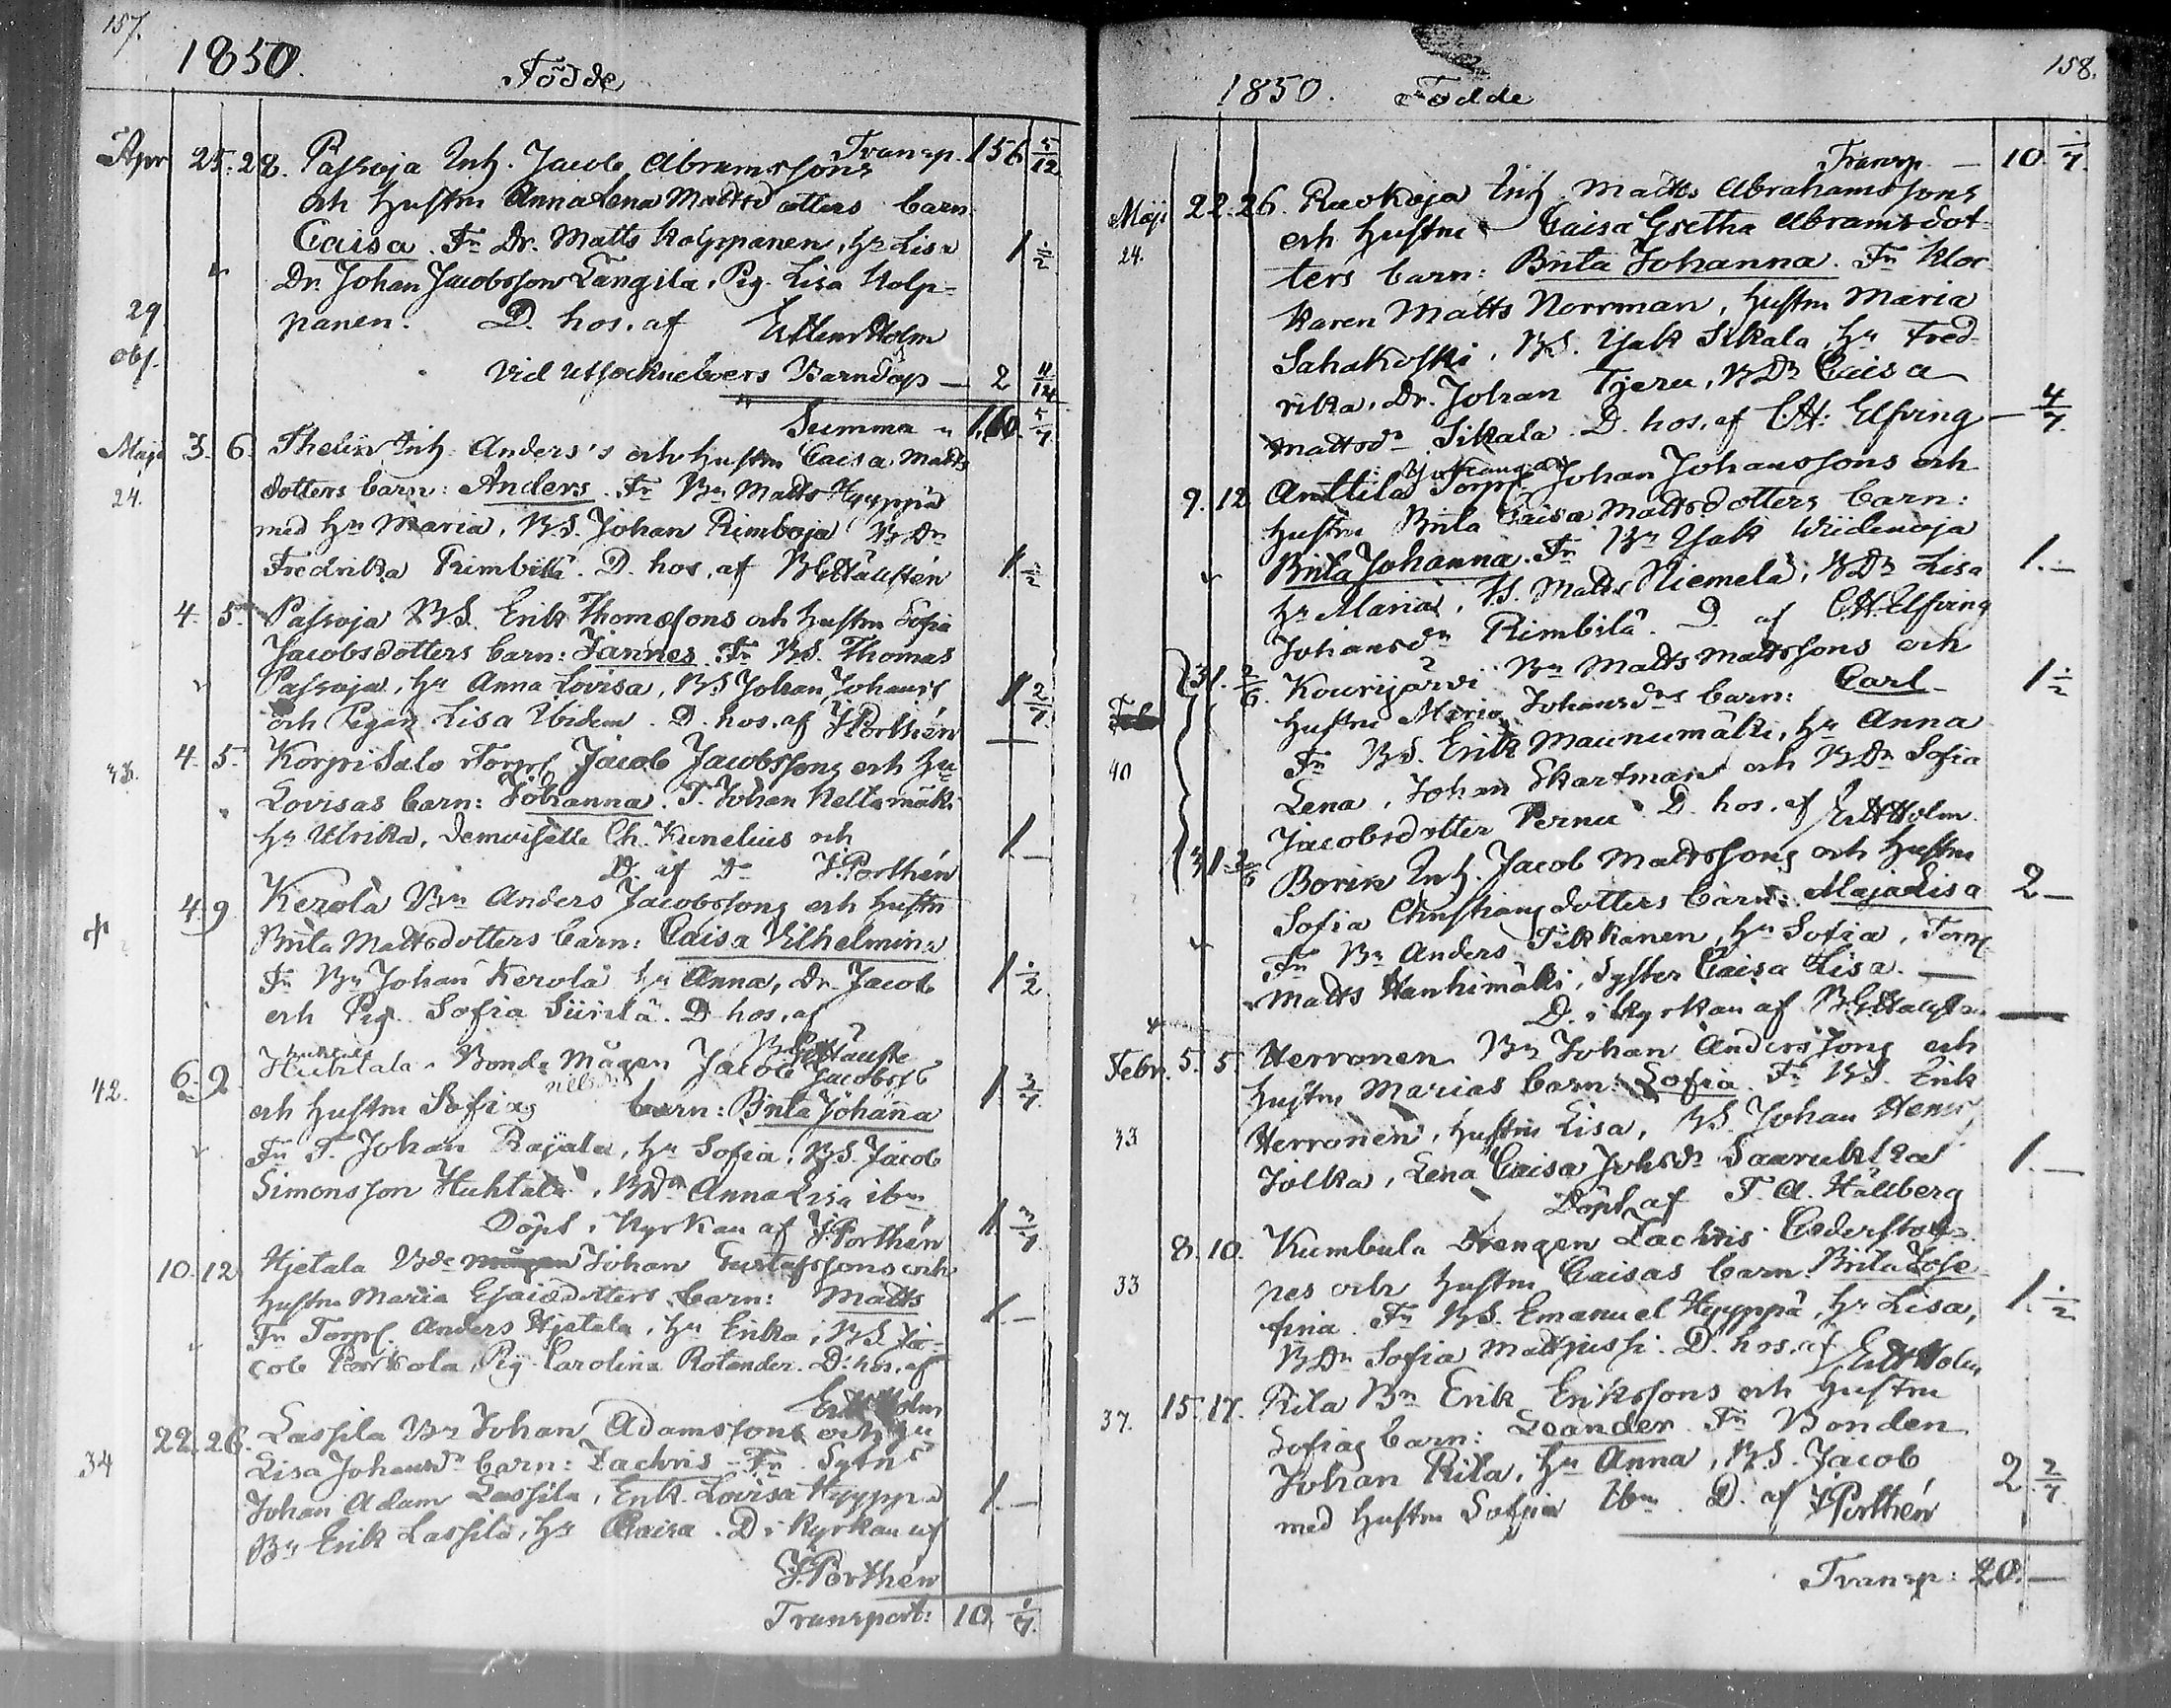 157.
1850.
Födde
Transp. 156 5/12
Apr 25. 28. Passoja Inh. Jacob Abramssons
och Hustru Anna Lena Mattsdotters barn
Caisa. Fr Dr. Matts Kolppanen, Hr Lisa 1 1/2
Dr. Johan Jacobsson Långila, Pig. Lisa Kolp-
29 panen. D. hos. af Holm
obs.
Vid Utsockneboers Barndop — 2 11/12
Summa 160. 5/7
Maji 3. 6. Anders's och hustru Caisa Matts
24. dotters barn: Anders. Fr Bn Matts Hyyppä
med Hn Maria, B.S. Johan Rimboja B Dr
Fredrika Rimbilä. D. hos. af Hällstén 1. 1/2
4. 5. Passoja B.S. Erik Thomæsons och hustru Sofia
Jacobsdotters barn: Jannes. Fr B.S. Thomas
Passoja, Hr Anna Lovisa, B.S Johan Johanss
och Pigan Lisa Ibidem. D. hos. af J Porthén 1 2/7.
4. 5. Korpisalo Torps Jacob Jacobssons och Hu
Lovisas barn: Johanna. T. Johan Keltamäki
Hr Ulrika, Demoiselle Ch. Kunelius och
D. af Dn J. Porthén 1.—
4. 9 Kerola Bn Anders Jacobssons och hustru
Brita Mattsdotters barn: Caisa Vilhelmina
Fr Bn Johan Kerola Hr Anna, Dr. Jacob 1 1/2.
och Pig. Sofia Siirilä. D. hos. af
6. 9. Huhtala Bonde Mågen Jacob Jacobss
42. och hustru Sofias barn: Brita Johanna 1. 3/7.
Fr T. Johan Rajala, Hr Sofia, B.S. Jacob
Simonsson Huhtala, B Dr Anna Lisa ibm
Döpt i Kyrkan af J. Porthén 1. 3/7
10. 12 Hjetala Bde Johan Gustafssons och
hustru Maria Esaiædotters barn: Matts
Fr Torps. Anders Hjetala, Hr Erika, B.S. Ja- 1.—
cob Pig. Carolina Rotander. D. hos. af
Holm
22. 26. Lassila Bn Johan Adamssons och Hu
34 Lisa Johansdr barn: Zachris - Fr Sytn
Johan Adam Lassila, Enk. Lovisa Hyyppä 1.—
Bn Erik Lassila, Hr Caisa. D i Kyrkan af
J. Porthén
Transport: 10. 1/7.
158.
1850. Födde
Transp. — 10. 1/7.
Maji 22. 26. Ravkoja Inh Matts Abrahamssons
24. och hustru Caisa Gretha Abramsdot-
ters barn: Brita Johanna. Fr Kloc-
karen Matts Norrman, hustru Maria
Sahakoski. B.S. Isak Sikala, Hr Fred-
rika, Dr. Johan Tjeru, B Dr Caisa
Mattsdr Sikala. D. hos. af C.H. Elfving — 4/7.
9. 12 Anttila Torps Johan Johanssons och
hustru Brita Caisa Mattsdotters barn:
Brita Johanna. Fr Bn Isak Wiidenoja
Hr Maria, B.S. Matts Niemelä, B Dr Lisa 1.—
Johansdr Rimbilä. D. af C.H. Elfving
31. 2/6. Kourijärvi Bn Matts Mattssons och
hustru Maria Johansdrs barn: Carl 1 1/2
Fr B.S. Erik Maunumäki, Hr Anna
40 Lena, Johan Skartman och B Dr Sofia
Jacobsdotter Pernu. D. hos. af Holm.
31. 2/6 Borin Inh. Jacob Mattssons och hustru
Sofia Christians dotters barn: Maja Lisa 2—
Fr Bn Anders Tikkanen, Hr Sofia, Torps.
Matts Hanhimäki, Syster Caisa Lisa.—
D. i Kyrkan af
Febr. 5. 5. Herronen Bn Johan Anderssons och
hustru Marias barn: Sofia. Fr B.S. Erik
33 Herronen, hustru Lisa, B.S. Johan Henrs
Jolka, Lena Caisa Johsdr 1.—
Döpt af F. A. Hällberg
8. 10. Kumbula Drengen Zachris Cederstol-
33 pes och hustru Caisas barn: Brita Jose-
fina. Fr B.S. Emanuel Hyyppä, Hr Lisa, 1. 1/2
B Dr Sofia Mattjussi. D. hos. af Holm
15. 17. Rita Bn Erik Erikssons och hustru
37. Sofias barn: Leander. Fr Bonden
Johan Rita, Hr Anna, B.S. Jacob 2 2/7.
med hustru Sofia Ibm. D. af J Porthén
Transp: 20.—